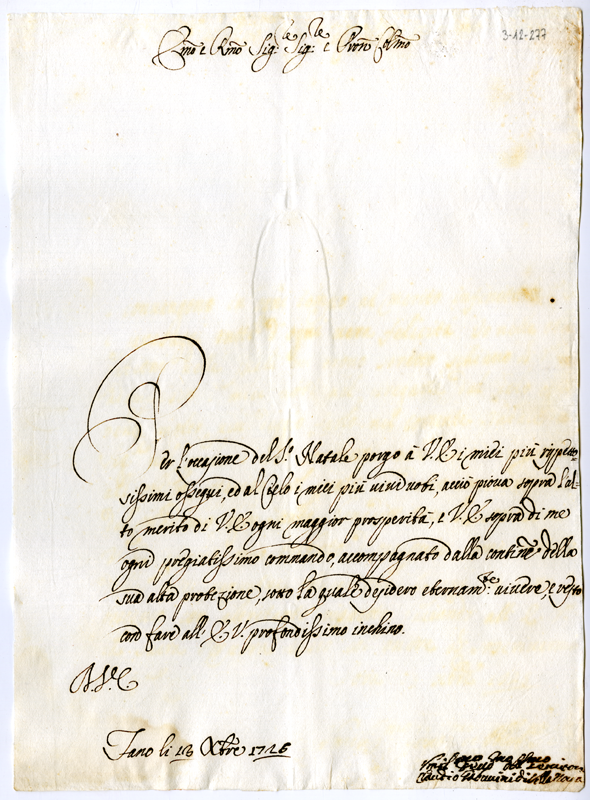 3-12-277
Em̃o e Rm̃o Sig:re Sig:re e Pron Col̃mo
Per l'occasione del S.o Natale porgo à V. E. i miei più rispetto-
sissimi ossequi, ed al Cielo i miei più vivi voti, acciò piova sopra l'al-
to merito di V. E. ogni maggior prosperità, e V. E. sopra di me
ogni pregiatissimo commando, accompagnato dalla continũe della
sua alta protezione, sotto la quale desidero eternam.te vivere, e resto
con fare all' E. V. profondissimo inchino.
Fano li 13 Xbre 1726
Claudio